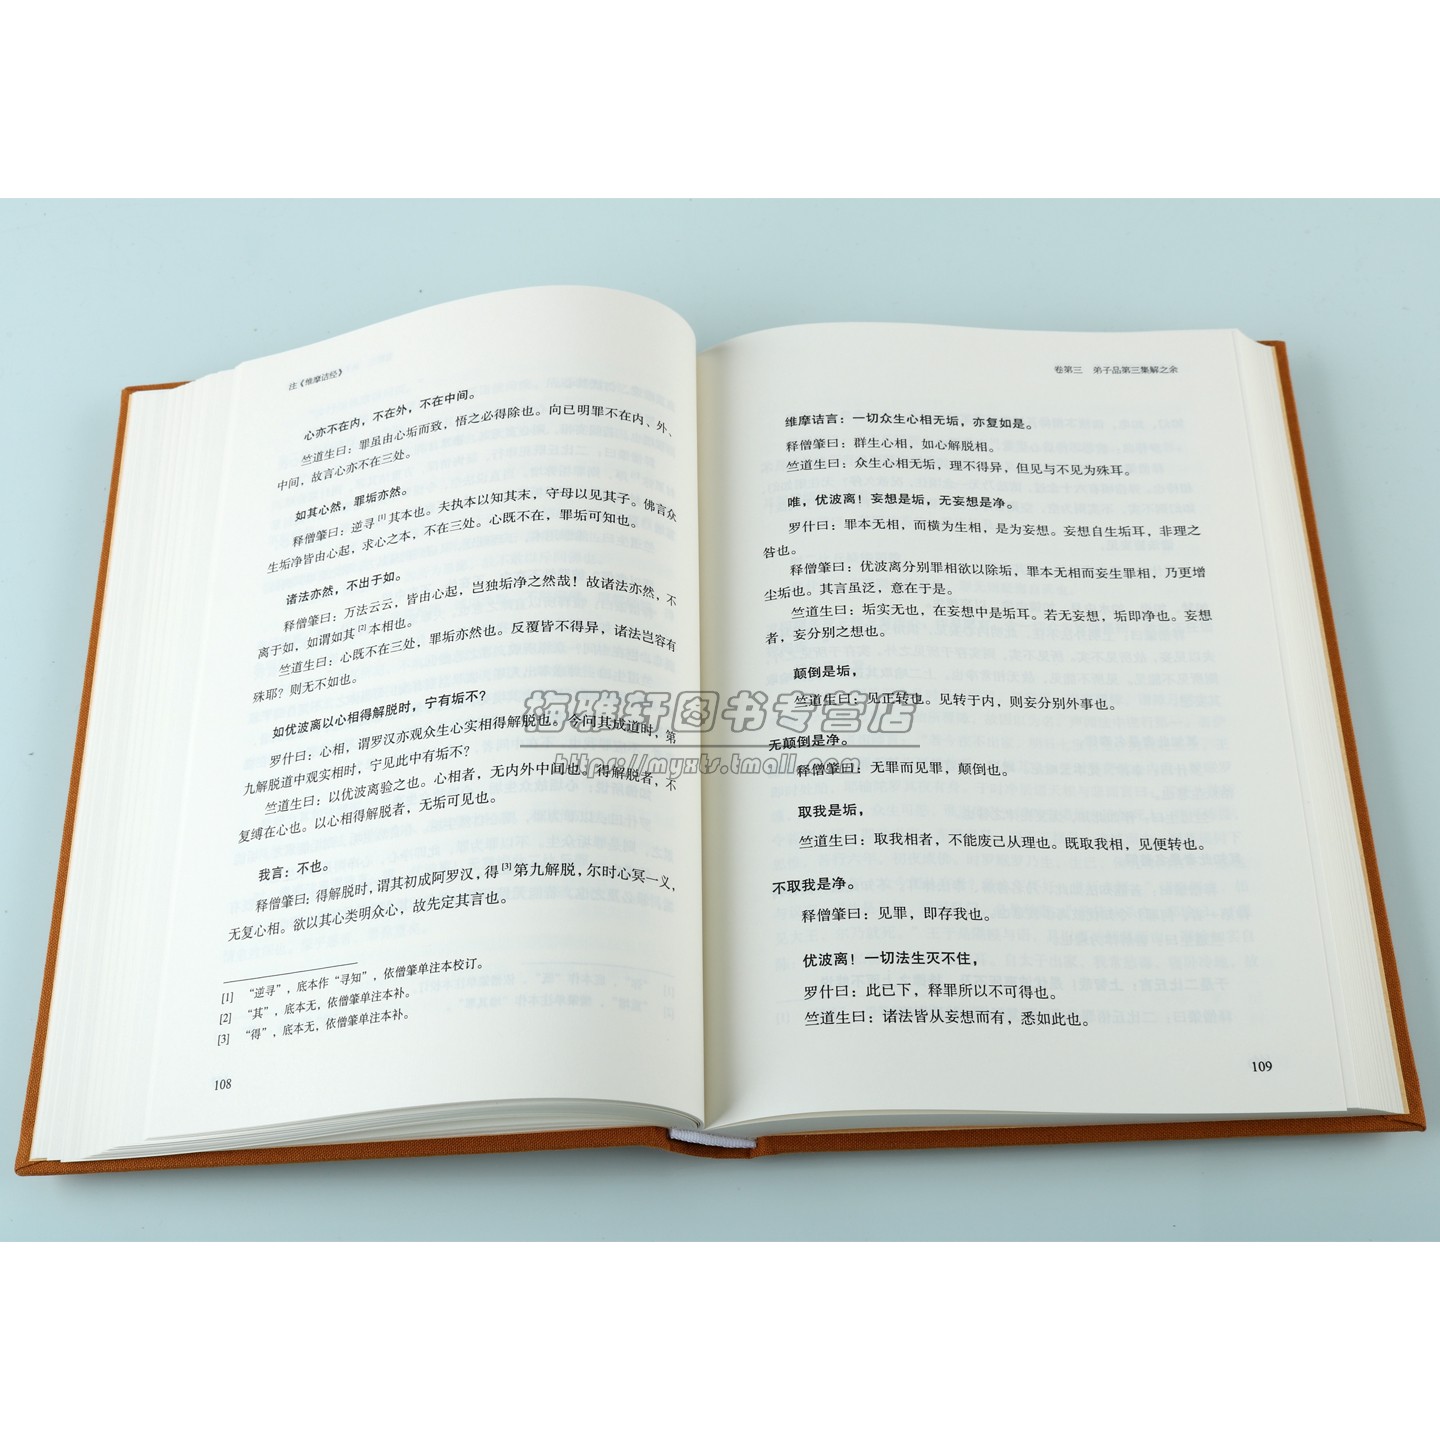 注《维摩诘经》
心亦不在内，不在外，不在中间。
竺道生曰：罪虽由心垢而致，悟之必得除也。向已明罪不在内、外、
中间，故言心亦不在三处。
如其心然，罪垢亦然。
释僧肇曰：逆寻[1]其本也。夫执本以知其末，守母以见其子。佛言众
生垢净皆由心起，求心之本，不在三处。心既不在，罪垢可知也。
诸法亦然，不出于如。
释僧肇曰：万法云云，皆由心起，岂独垢净之然哉！故诸法亦然，不
离于如，如谓如其[2]本相也。
竺道生曰：心既不在三处，罪垢亦然也。反覆皆不得异，诸法岂容有
殊耶？则无不如也。
如优波离以心相得解脱时，宁有垢不？
罗什曰：心相，谓罗汉亦观众生心实相得解脱也。今问其成道时，第
九解脱道中观实相时，宁见此中有垢不？
竺道生曰：以优波离验之也。心相者，无内外中间也。得解脱者，不
复缚在心也。以心相得解脱者，无垢可见也。
我言：不也。
释僧肇曰：得解脱时，谓其初成阿罗汉，得[3]第九解脱，尔时心冥一义，
无复心相。欲以其心类明众心，故先定其言也。
[1] “逆寻”，底本作“寻知”，依僧肇单注本校订。
[2] “其”，底本无，依僧肇单注本补。
[3] “得”，底本无，依僧肇单注本补。
108
卷第三 弟子品第三集解之余
维摩诘言：一切众生心相无垢，亦复如是。
释僧肇曰：群生心相，如心解脱相。
竺道生曰：众生心相无垢，理不得异，但见与不见为殊耳。
唯，优波离！妄想是垢，无妄想是净。
罗什曰：罪本无相，而横为生相，是为妄想。妄想自生垢耳，非理之
咎也。
释僧肇曰：优波离分别罪相欲以除垢，罪本无相而妄生罪相，乃更增
尘垢也。其言虽泛，意在于是。
竺道生曰：垢实无也，在妄想中是垢耳。若无妄想，垢即净也。妄想
者，妄分别之想也。
颠倒是垢，
竺道生曰：见正转也。见转于内，则妄分别外事也。
无颠倒是净。
释僧肇曰：无罪而见罪，颠倒也。
取我是垢，
竺道生曰：取我相者，不能废己从理也。既取我相，见便转也。
不取我是净。
释僧肇曰：见罪，即存我也。
优波离！一切法生灭不住，
罗什曰：此已下，释罪所以不可得也。
竺道生曰：诸法皆从妄想而有，悉如此也。
109
梅雅轩图书专营店
https://myxts.tmall.com